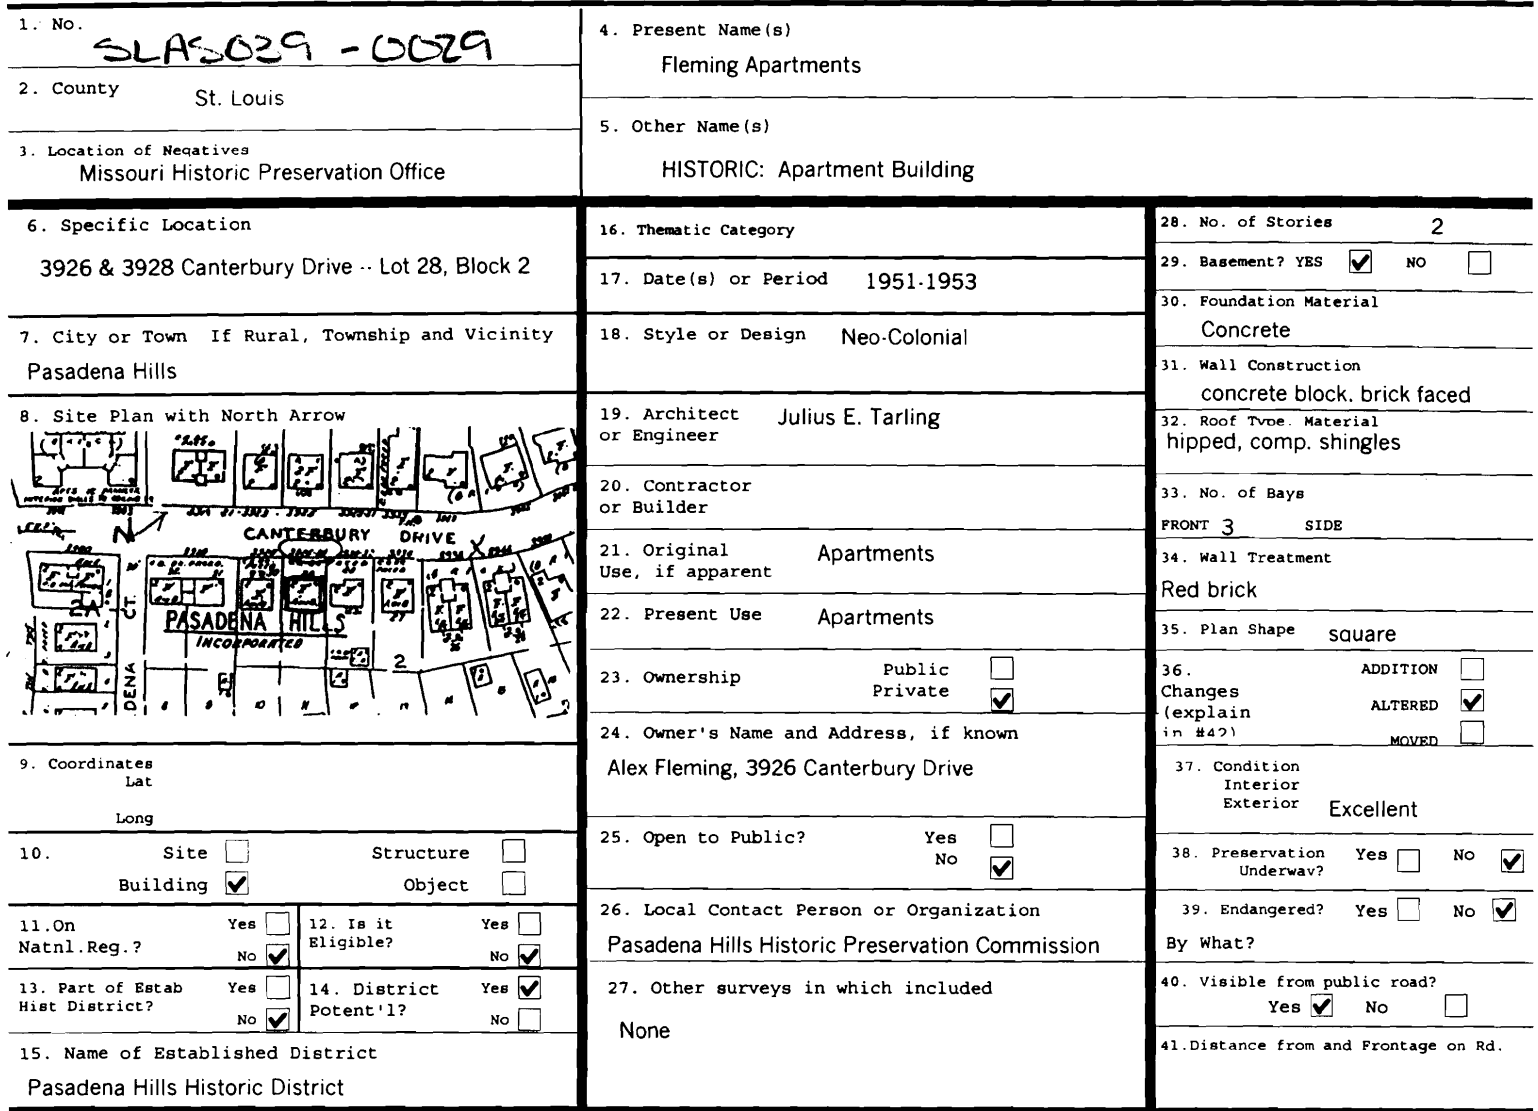 1. No.
SLAS029-0029
2. County St. Louis
3. Location of Negatives
Missouri Historic Preservation Office
4. Present Name(s)
Fleming Apartments
5. Other Name(s)
HISTORIC: Apartment Building
6. Specific Location
3926 & 3928 Canterbury Drive -- Lot 28, Block 2
7. City or Town If Rural, Township and Vicinity
Pasadena Hills
8. Site Plan with North Arrow
N
CANTERBURY DRIVE
2A
CT.
DENA
PASADENA HILLS
INCORPORATED
2
9. Coordinates
Lat
Long
10. Site Structure
Building ✔ Object
11.On Yes
Natnl.Reg.? No ✔
12. Is it Yes
Eligible? No ✔
13. Part of Estab Yes
Hist District? No ✔
14. District Yes ✔
Potent'l? No
15. Name of Established District
Pasadena Hills Historic District
16. Thematic Category
17. Date(s) or Period 1951-1953
18. Style or Design Neo-Colonial
19. Architect Julius E. Tarling
or Engineer
20. Contractor
or Builder
21. Original Apartments
Use, if apparent
22. Present Use Apartments
23. Ownership Public
Private ✔
24. Owner's Name and Address, if known
Alex Fleming, 3926 Canterbury Drive
25. Open to Public? Yes
No ✔
26. Local Contact Person or Organization
Pasadena Hills Historic Preservation Commission
27. Other surveys in which included
None
28. No. of Stories 2
29. Basement? YES ✔ NO
30. Foundation Material
Concrete
31. Wall Construction
concrete block. brick faced
32. Roof Type. Material
hipped, comp. shingles
33. No. of Bays
FRONT 3 SIDE
34. Wall Treatment
Red brick
35. Plan Shape square
36. ADDITION
Changes
(explain ALTERED ✔
in #42) MOVED
37. Condition
Interior
Exterior Excellent
38. Preservation Yes No ✔
Underway?
39. Endangered? Yes No ✔
By What?
40. Visible from public road?
Yes ✔ No
41.Distance from and Frontage on Rd.